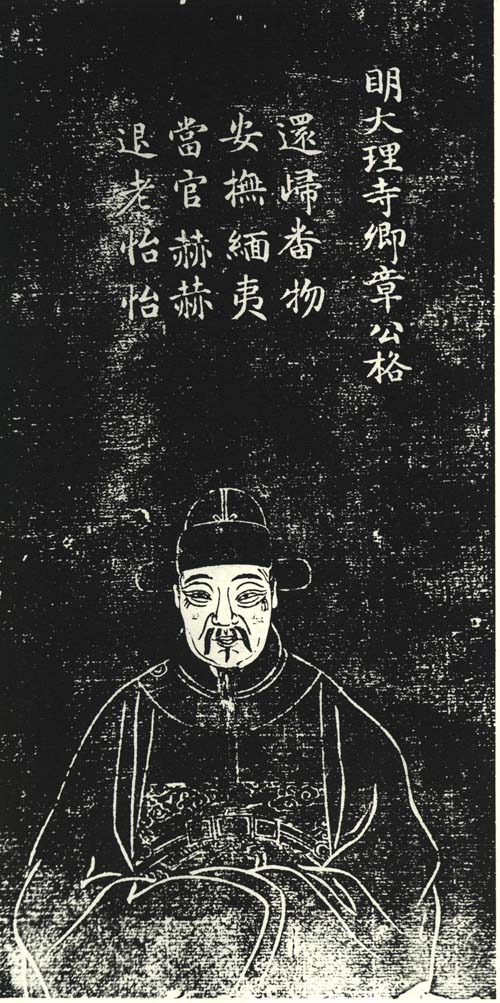 明大理寺卿章公格
還歸番物
安撫緬夷
當官赫赫
退老怡怡